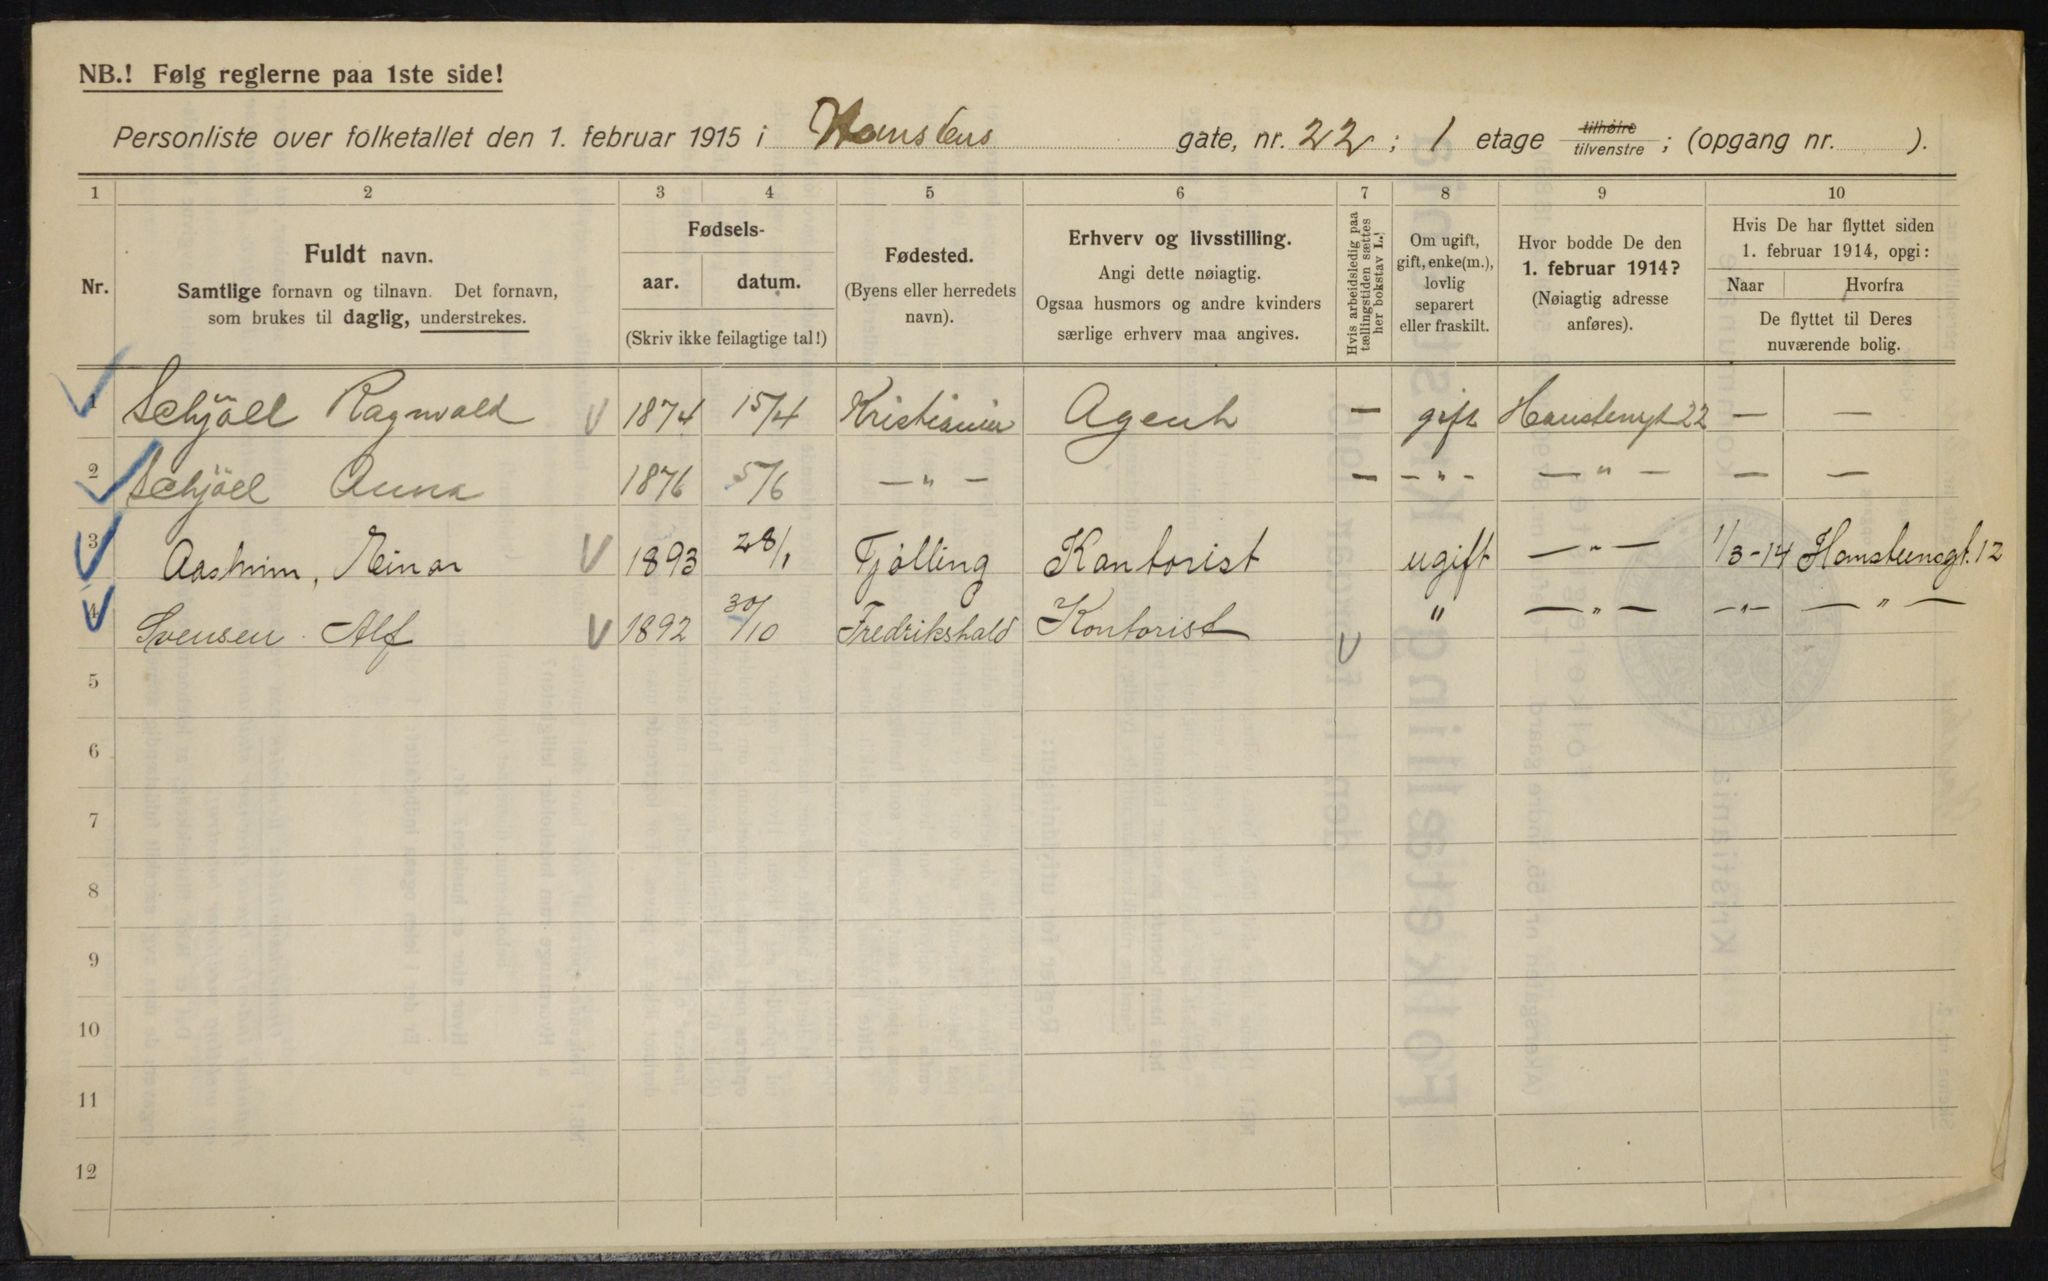 NB.! Følg reglerne paa 1ste side!
Personliste over folketallet den 1. februar 1915 i Hanstens gate, nr. 22 ; 1 etage tilhøire tilvenstre ; (opgang nr. ).
1 2 3 4 5 6 7 8 9 10
Nr.
Fuldt navn.
Samtlige fornavn og tilnavn. Det fornavn,
som brukes til daglig, understrekes.
Fødsels-
aar. datum.
(Skriv ikke feilagtige tal!)
Fødested.
(Byens eller herredets
navn).
Erhverv og livsstilling.
Angi dette nøiagtig.
Ogsaa husmors og andre kvinders
særlige erhverv maa angives.
Hvis arbeidsledig paa
tællingstiden sættes
her bokstav L.
Om ugift,
gift, enke(m.),
lovlig
separert
eller fraskilt.
Hvor bodde De den
1. februar 1914?
(Nøiagtig adresse
anføres).
Hvis De har flyttet siden
1. februar 1914, opgi:
Naar Hvorfra
De flyttet til Deres
nuværende bolig.
1 Schjöll Ragnvald 1874 15/4 Kristiania Agent — gift Hanstensgt 22 — —
2 Schjöll Anna 1876 5/6 — „ — — — „ — — „ — — —
3 Aasheim, Einar 1893 28/1 Tjølling Kontorist ugift — „ — 1/3-14 Hansteensgt. 12
4 Svensen Alf 1892 30/10 Fredrikshald Kontorist " — „ — — „ — — „ —
5
6
7
8
9
10
11
12